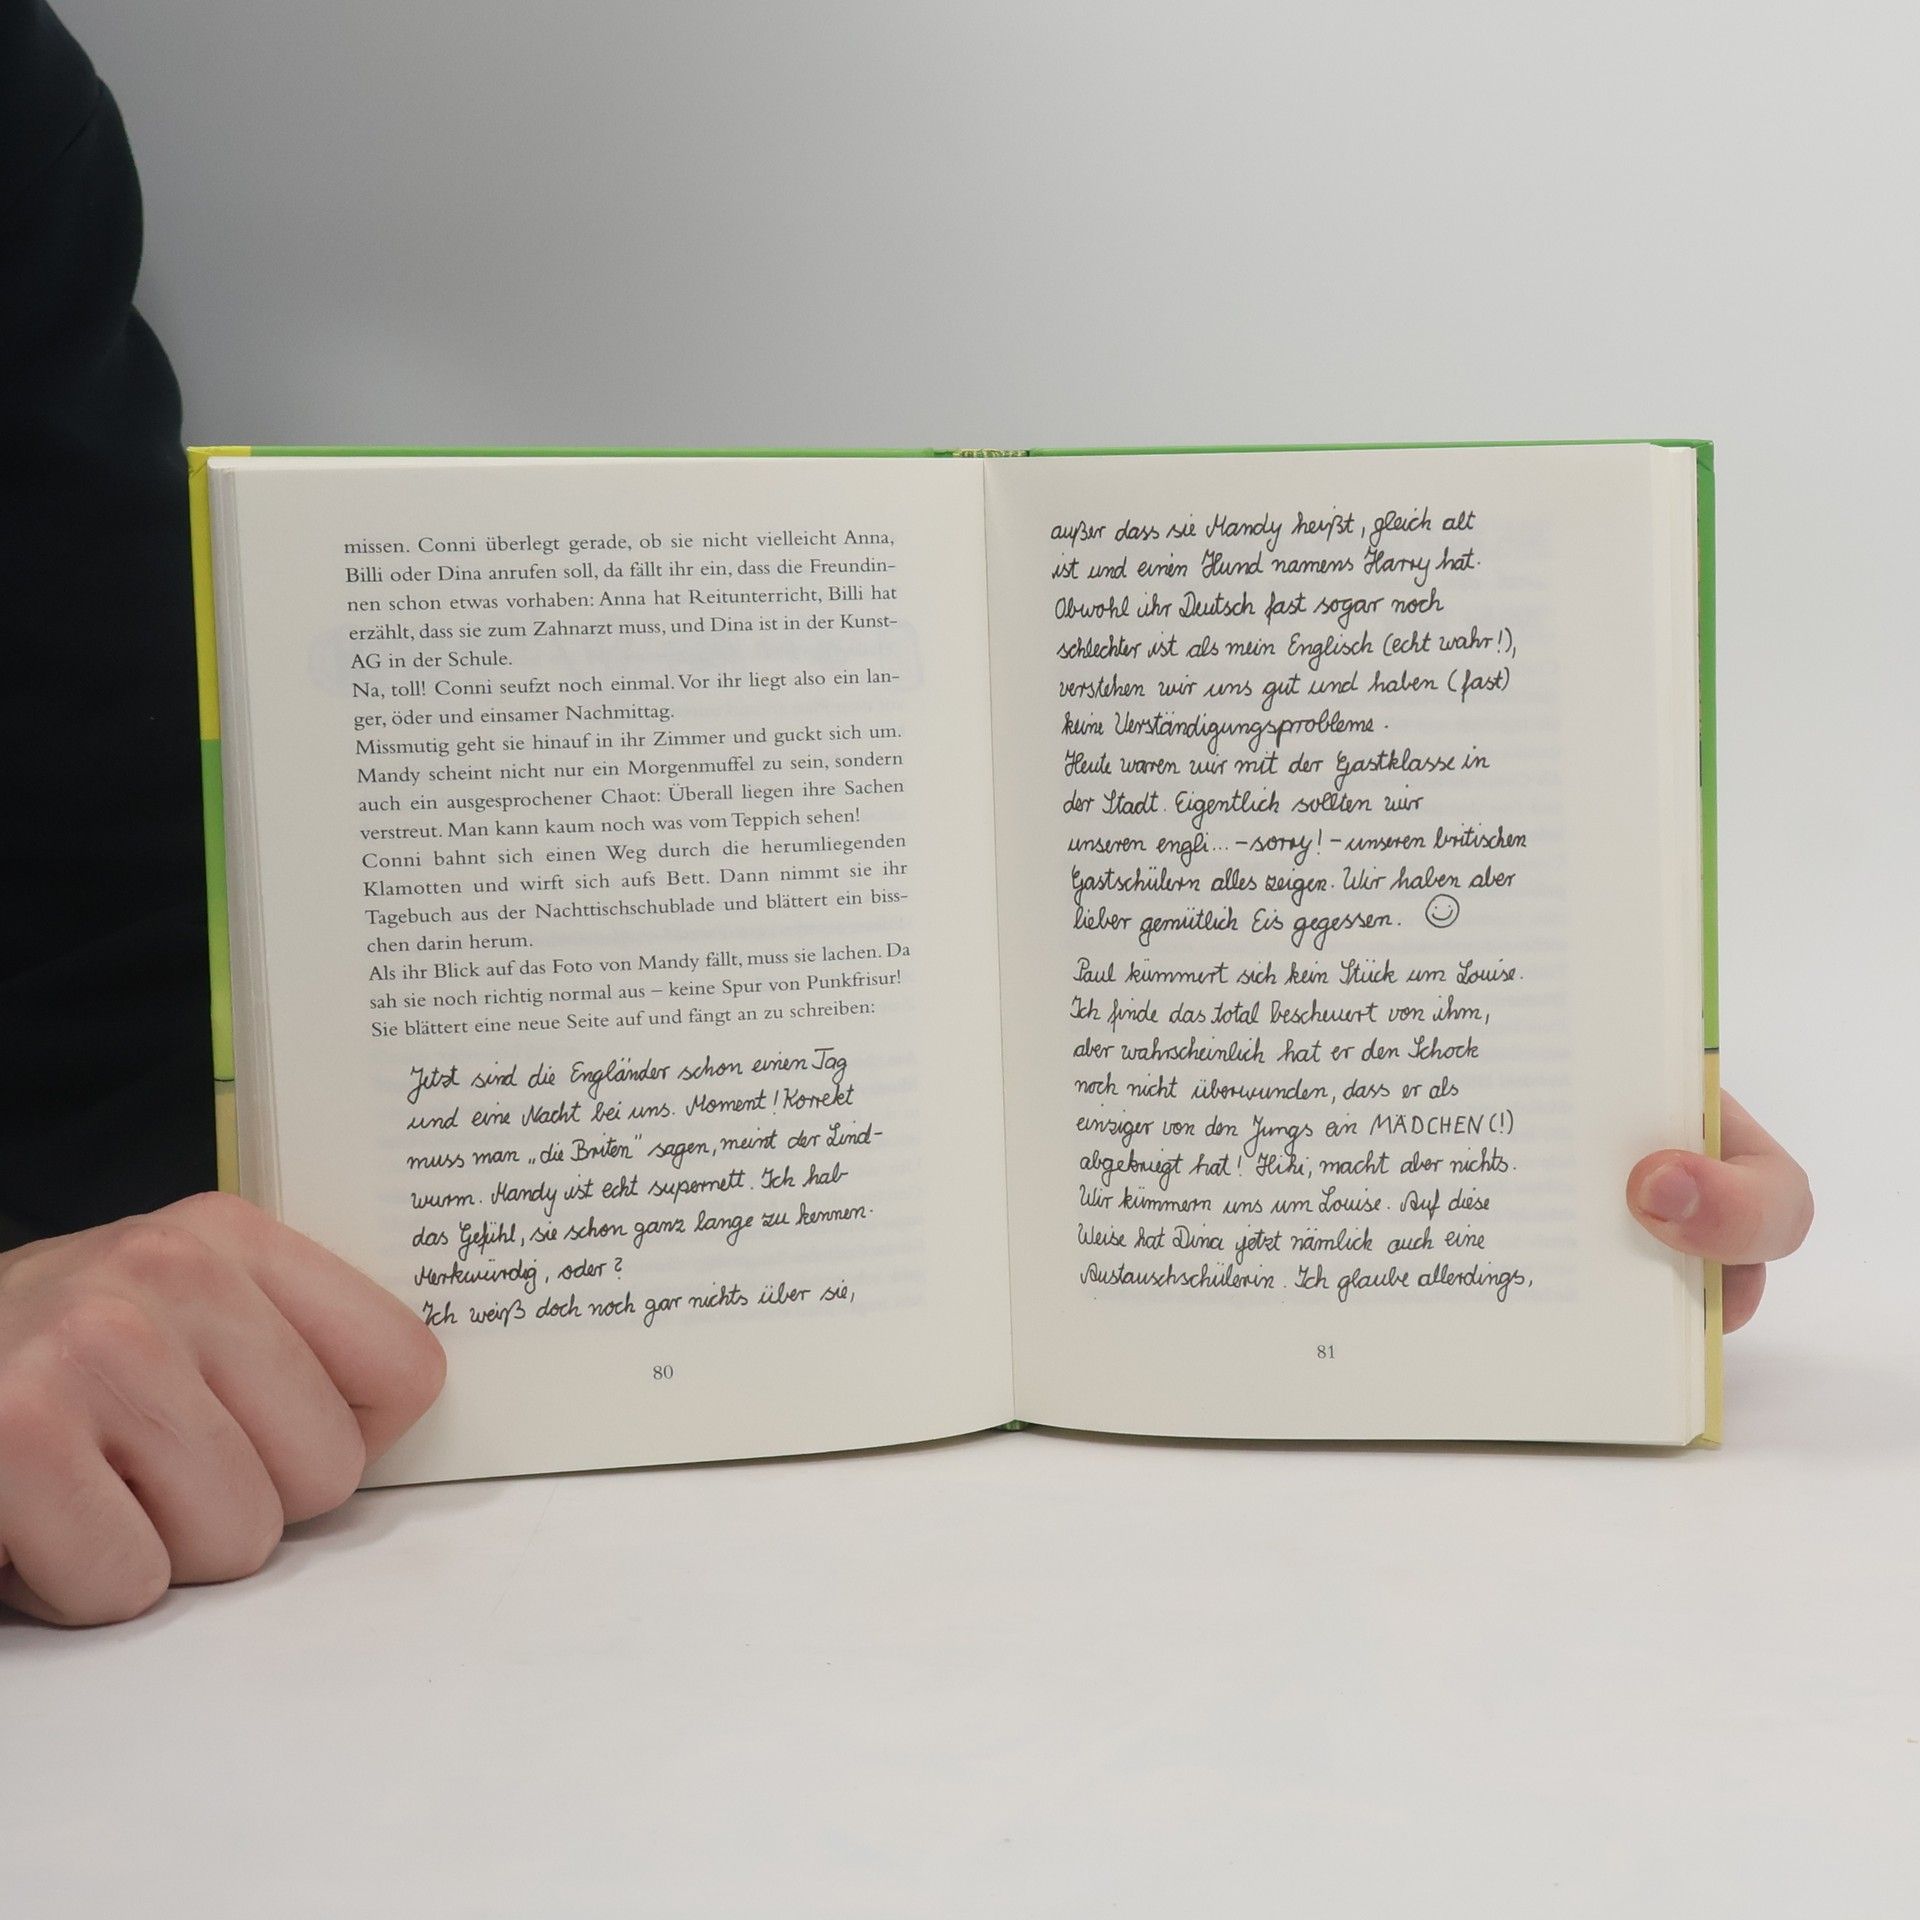 missen. Conni überlegt gerade, ob sie nicht vielleicht Anna,
Billi oder Dina anrufen soll, da fällt ihr ein, dass die Freundin-
nen schon etwas vorhaben: Anna hat Reitunterricht, Billi hat
erzählt, dass sie zum Zahnarzt muss, und Dina ist in der Kunst-
AG in der Schule.
Na, toll! Conni seufzt noch einmal. Vor ihr liegt also ein lan-
ger, öder und einsamer Nachmittag.
Missmutig geht sie hinauf in ihr Zimmer und guckt sich um.
Mandy scheint nicht nur ein Morgenmuffel zu sein, sondern
auch ein ausgesprochener Chaot: Überall liegen ihre Sachen
verstreut. Man kann kaum noch was vom Teppich sehen!
Conni bahnt sich einen Weg durch die herumliegenden
Klamotten und wirft sich aufs Bett. Dann nimmt sie ihr
Tagebuch aus der Nachttischschublade und blättert ein biss-
chen darin herum.
Als ihr Blick auf das Foto von Mandy fällt, muss sie lachen. Da
sah sie noch richtig normal aus – keine Spur von Punkfrisur!
Sie blättert eine neue Seite auf und fängt an zu schreiben:
Jetzt sind die Engländer schon einen Tag
und eine Nacht bei uns. Moment! Korrekt
muss man „die Briten" sagen, meint der Lind-
wurm. Mandy ist echt supernett. Ich hab
das Gefühl, sie schon ganz lange zu kennen.
Merkwürdig, oder?
Ich weiß doch noch gar nichts über sie,
80
außer dass sie Mandy heißt, gleich alt
ist und einen Hund namens Harry hat.
Obwohl ihr Deutsch fast sogar noch
schlechter ist als mein Englisch (echt wahr!),
verstehen wir uns gut und haben (fast)
keine Verständigungsprobleme.
Heute waren wir mit der Gastklasse in
der Stadt. Eigentlich sollten wir
unseren engli... – sorry! – unseren britischen
Gastschülern alles zeigen. Wir haben aber
lieber gemütlich Eis gegessen. ☺
Paul kümmert sich kein Stück um Louise.
Ich finde das total bescheuert von ihm,
aber wahrscheinlich hat er den Schock
noch nicht überwunden, dass er als
einziger von den Jungs ein MÄDCHEN (!)
abgekriegt hat! Hihi, macht aber nichts.
Wir kümmern uns um Louise. Auf diese
Weise hat Dina jetzt nämlich auch eine
Austauschschülerin. Ich glaube allerdings,
81